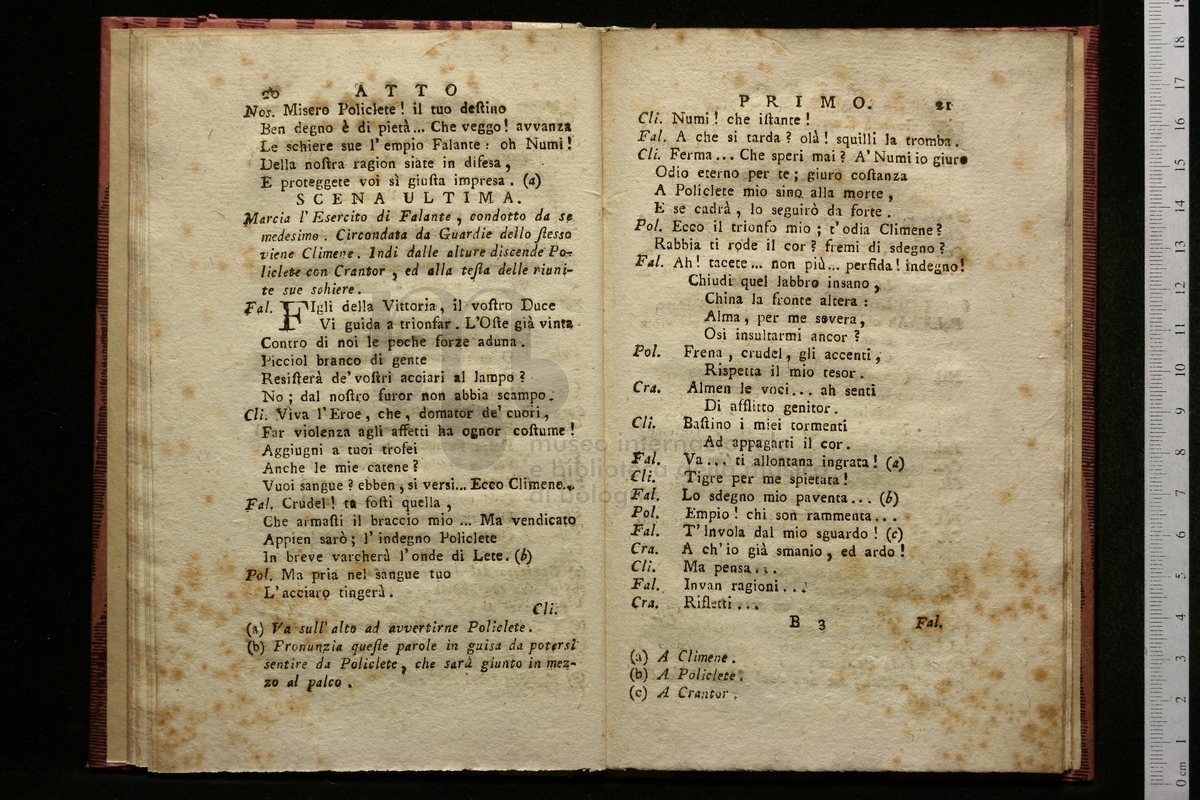 20 ATTO
Nos. Misero Policlete! il tuo deſtino
Ben degno è di pietà... Che veggo! avvanza
Le schiere sue l'empio Falante: oh Numi!
Della noſtra ragion siate in difesa,
E proteggete voi sì giuſta impresa. (a)
SCENA ULTIMA.
Marcia l'Esercito di Falante, condotto da se
medesimo. Circondata da Guardie dello ſteſſo
viene Climene. Indi dalle alture discende Po-
liclete con Crantor, ed alla teſta delle riuni-
te sue schiere.
Fal. FIgli della Vittoria, il voſtro Duce
Vi guida a trionfar. L'Oſte già vinta
Contro di noi le poche forze aduna.
Picciol branco di gente
Resiſterà de' voſtri acciari al lampo?
No; dal noſtro furor non abbia scampo.
Cli. Viva l'Eroe, che, domator de' cuori,
Far violenza agli affetti ha ognor coſtume!
Aggiugni a tuoi trofei
Anche le mie catene?
Vuoi sangue? ebben, si versi... Ecco Climene...
Fal. Crudel! tu foſti quella,
Che armaſti il braccio mio... Ma vendicato
Appien sarò; l'indegno Policlete
In breve varcherà l'onde di Lete. (b)
Pol. Ma pria nel sangue tuo
L'acciaro tingerà.
Cli.
(a) Va sull'alto ad avvertirne Policlete.
(b) Pronunzia queſte parole in guisa da potersi
sentire da Policlete, che sarà giunto in mez-
zo al palco.
PRIMO. 21
Cli. Numi! che iſtante!
Fal. A che si tarda? olà! squilli la tromba.
Cli. Ferma... Che speri mai? A' Numi io giuro
Odio eterno per te; giuro coſtanza
A Policlete mio sino alla morte,
E se cadrà, lo seguirò da forte.
Pol. Ecco il trionfo mio; t'odia Climene?
Rabbia ti rode il cor? fremi di sdegno?
Fal. Ah! tacete... non più... perfida! indegno!
Chiudi quel labbro insano,
China la fronte altera:
Alma, per me severa,
Osi insultarmi ancor?
Pol. Frena, crudel, gli accenti,
Rispetta il mio tesor.
Cra. Almen le voci... ah senti
Di afflitto genitor.
Cli. Baſtino i miei tormenti
Ad appagarti il cor.
Fal. Va... ti allontana ingrata! (a)
Cli. Tigre per me spietata!
Fal. Lo sdegno mio paventa... (b)
Pol. Empio! chi son rammenta...
Fal. T'invola dal mio sguardo! (c)
Cra. A ch'io già smanio, ed ardo!
Cli. Ma pensa...
Fal. Invan ragioni...
Cra. Rifletti...
B 3 Fal.
(a) A Climene.
(b) A Policlete.
(c) A Crantor.
museo interna
e biblioteca della musica
di bologna